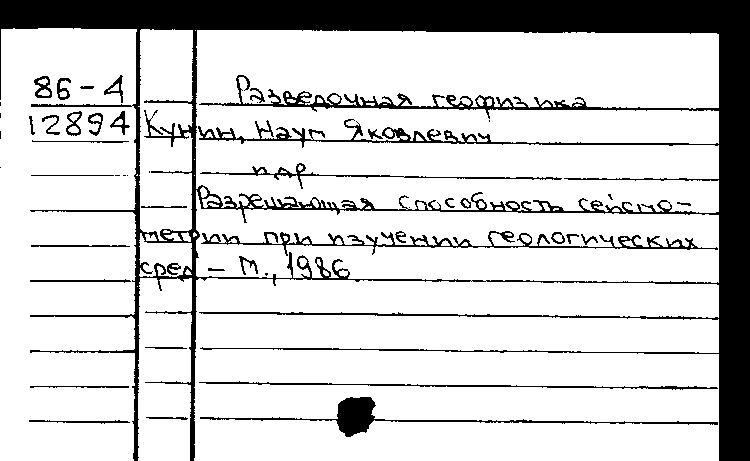 86-4 Разведочная геофизика
12894 Кунин, Наум Яковлевич
и др.
Разрешающая способность сейсмо-
метрии при изучении геологических
сред. – М., 1986